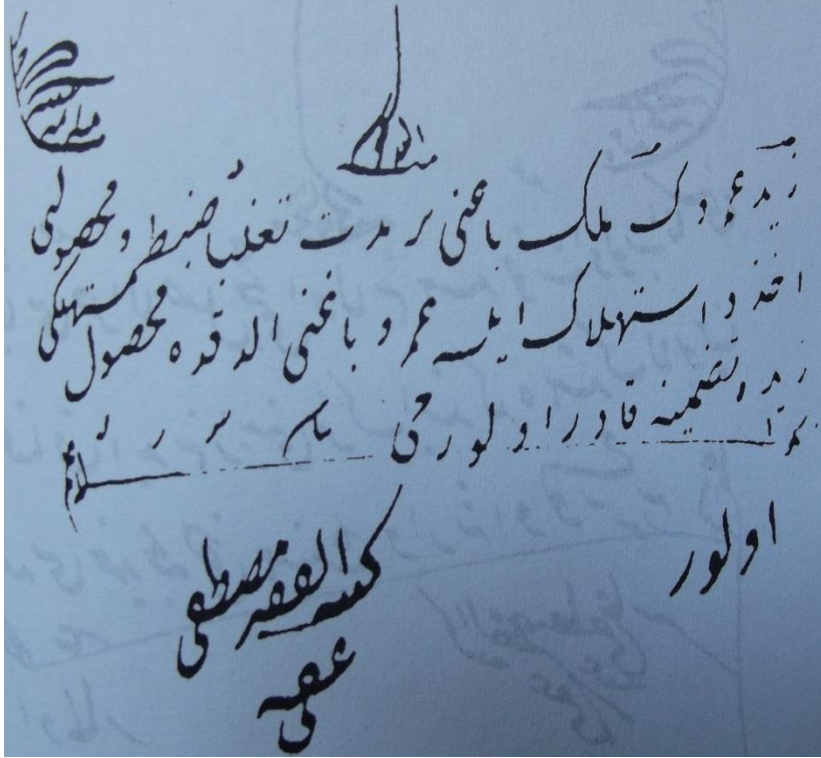 منه التوفيق
زيد عمروك ملك باغنى بر مدت تغلباً ضبط و محصولنى
اخذ و استهلاك ايلسه عمرو باغنى الدقده محصول مستهلكى
زيده تضمينه قادر اولورمى
اولور
كتبه الفقير مصطفى
عفى عنه